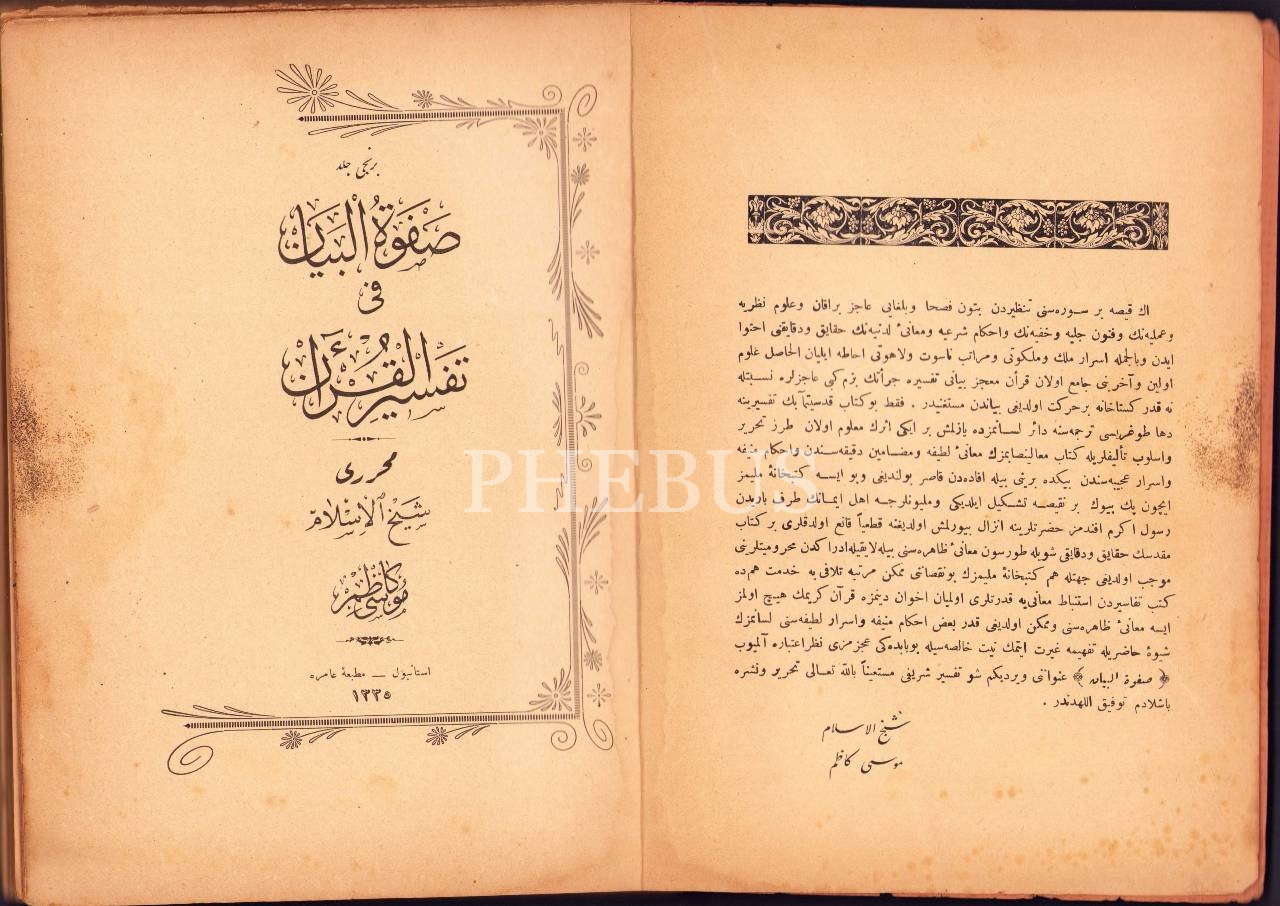 برنجى جلد
صَفْوَةُ الْبَيَان
فى
تَفْسِيرِ الْقُرْأٰن
محررى
شَيْخُ الْاِسْلَامْ
مُوسٰى كَاظِمْ
استانبول — مطبعهٔ عامره
١٣٣٥
PHEBUS
اك قيصه بر سوره‌سنى تنظيردن بتون فصحا وبلغايى عاجز براقان وعلوم نظريه
وعمليه‌نك وفنون جليه وخفيه‌نك واحكام شرعيه ومعانئ لدنيه‌نك حقايق ودقايقنى احتوا
ايدن وبالجمله اسرار ملك وملكوتى ومراتب ناسوت ولاهوتى احاطه ايليان الحاصل علوم
اولين وآخرينى جامع اولان قرآن معجز بيانى تفسيره جرأتك بزم كبى عاجزلره نسبتله
نه قدر كستاخانه بر حركت اولديغى بياندن مستغنيدر . فقط بو كتاب قدسيتمآبك تفسيرينه
دها طوغريسى ترجمه‌سنه دائر لسانمزده يازلمش بر ايكى اثرك معلوم اولان طرز تحرير
واسلوب تأليفلريله كتاب معالينصابمزك معانئ لطيفه ومضامين دقيقه‌سندن واحكام منيفه
واسرار عجيبه‌سندن بيكده برينى بيله افاده‌دن قاصر بولنديغى وبو ايسه كتبخانهٔ مليمز
ايچون پك بيوك بر نقيصه تشكيل ايلديكى ومليونلرجه اهل ايمانك طرف باريدن
رسول اكرم افندمز حضرتلرينه انزال بيورلمش اولديغنه قطعياً قانع اولدقلرى بر كتاب
مقدسك حقايق ودقايقى شويله طورسون معانئ ظاهره‌سنى بيله لايقيله ادراكدن محروميتلرينى
موجب اولديغى جهتله هم كتبخانهٔ مليمزك بو نقصاننى ممكن مرتبه تلافى‌يه خدمت هم‌ده
كتب تفاسيردن استنباط معانى‌يه قدرتلرى اولميان اخوان دينمزه قرآن كريمك هيچ اولمز
ايسه معانئ ظاهره‌سنى وممكن اولديغى قدر بعض احكام منيفه واسرار لطيفه‌سنى لسانمزك
شيوهٔ حاضريله تفهيمه غيرت ايتمك نيت خالصه‌سيله بوبابده‌كى عجزمزى نظر اعتباره آلميوب
﴿ صفوة البيان ﴾ عنواننى ويرديكم شو تفسير شريفى مستعيناً بالله تعالى تحرير ونشره
باشلادم توفيق اللهدندر .
شيخ الاسلام
موسى كاظم